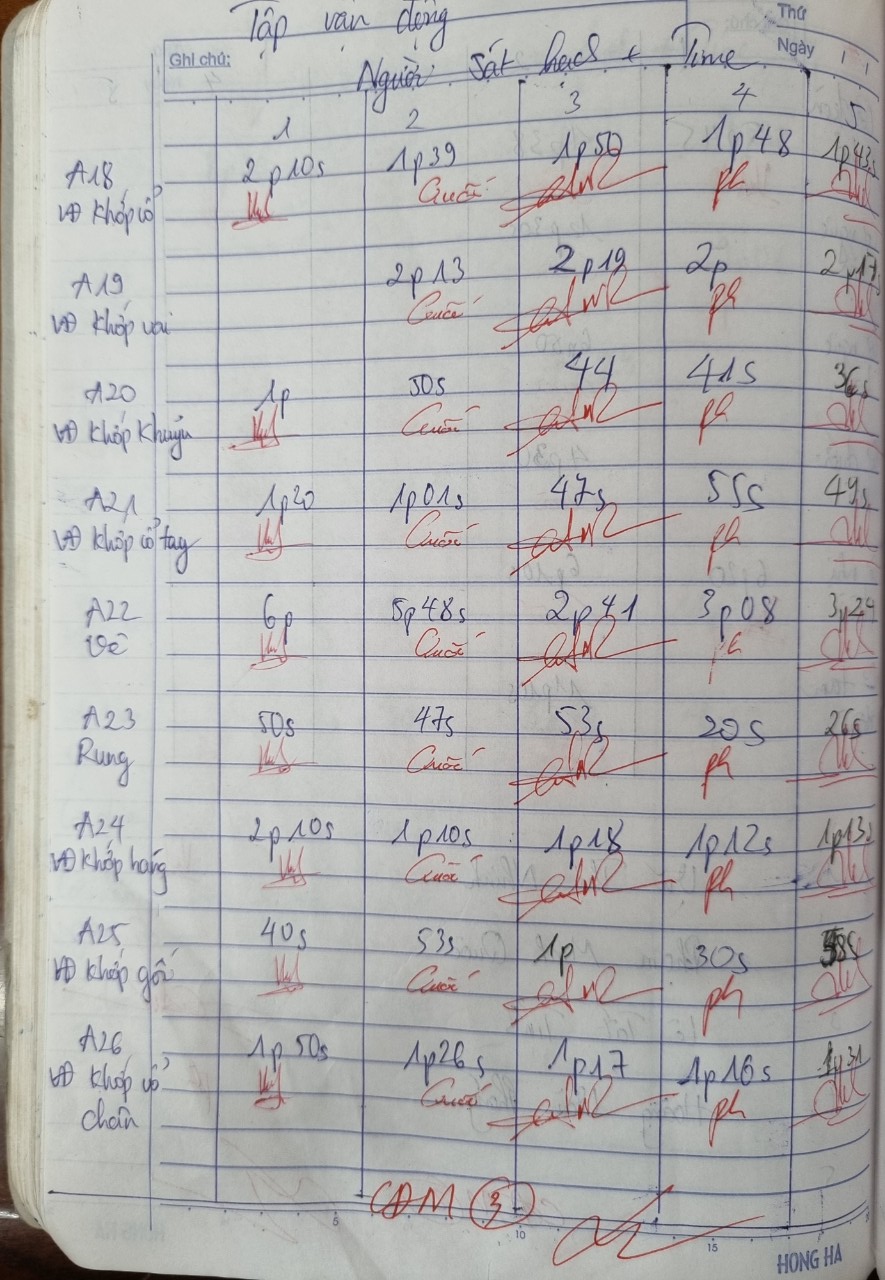 Tập vận động
Thứ
Ghi chú:
Ngày
Người sát hạch + Time
1 2 3 4 5
A18 2p10s 1p39 1p50 1p48 1p43s
VĐ khớp cổ Cuối ph
A19 2p13 2p19 2p 2p17
VĐ khớp vai Cuối ph
A20 1p 50s 44 41s 36s
VĐ khớp khuỷu Cuối ph
A21 1p20 1p01s 47s 55s 49s
VĐ khớp cổ tay Cuối ph
A22 6p 5p48s 2p41 3p08 3p24
Vê Cuối
A23 50s 47s 53s 20s 26s
Rung Cuối ph
A24 2p10s 1p10s 1p18 1p12s 1p13s
VĐ khớp háng Cuối ph
A25 40s 53s 1p 30s 58s
VĐ khớp gối Cuối ph
A26 1p50s 1p26s 1p17 1p16s 1p31
VĐ khớp cổ Cuối ph
chân
CĐM 3
5 10 15
HONG HA